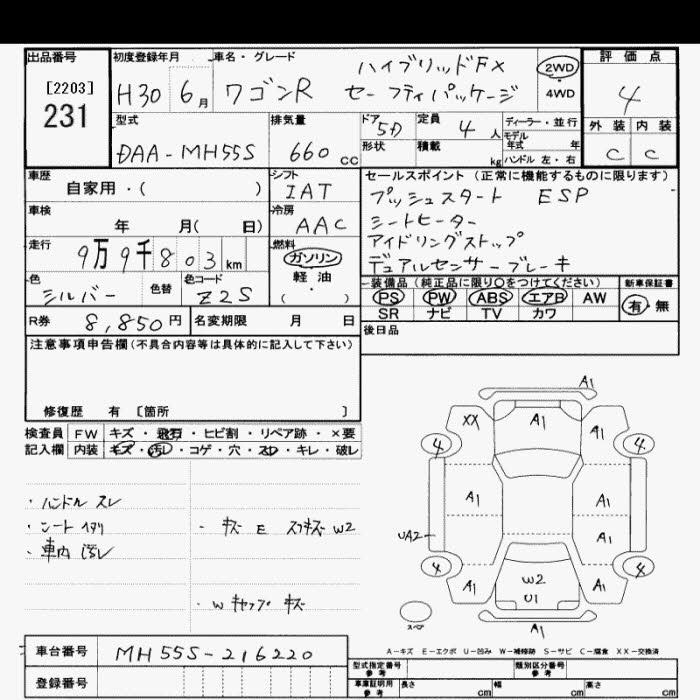 出品番号
[2203]
231
初度登録年月
H30 6月
車名・グレード
ワゴンR
ハイブリッドFX
セーフティパッケージ
2WD
4WD
評価点
4
型式
DAA-MH55S
排気量
660 cc
ドア
5D
形状
定員
4 人
積載
kg
ディーラー・並行
モデル
年式 年
ハンドル 左・右
外装 内装
C C
車歴
自家用・( )
シフト
IAT
セールスポイント (正常に機能するものに限ります)
プッシュスタート ESP
シートヒーター
アイドリングストップ
デュアルセンサーブレーキ
車検
年 月( 日)
冷房
AAC
走行
9万9千803km
燃料
ガソリン
軽油
・
( )
色
シルバー
色替
色コード
Z2S
装備品(純正品に限り○をつけてください)
PS PW ABS エアB AW
SR ナビ TV カワ
新車保証書
有・無
R券
8,850円
名変期限 月 日
後日品
注意事項申告欄(不具合内容等は具体的に記入して下さい)
修復歴 有 [箇所 ]
検査員 FW キズ・飛石・ヒビ割・リペア跡・×要
記入欄 内装 キズ・汚レ・コゲ・穴・スレ・キレ・破レ
・ハンドル スレ
・シート ヘタリ
・車内 汚レ
・キズ E スリキズ W2
・W キャップ キズ
A1
XX A1 A1
4 4
A1 A1
UA2 A1
4 4
A1 W2 A1
U1
スペア
A1
A-キズ E-エクボ U-凹み W-補修跡 S-サビ C-腐食 XX-交換済
車台番号
MH55S-216220
登録番号
型式指定番号
参考
類別区分番号
参考
車庫証明用
参考
長さ cm 幅 cm 高さ cm